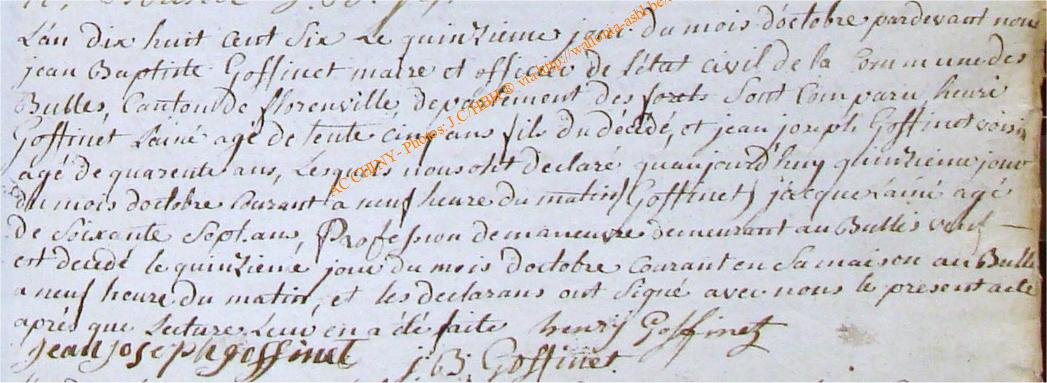 L'an dix huit cent six le quinzieme jour du mois d'octobre pardevant nous
jean Baptiste Goffinet maire et officier de l'état civil de la Commune des
Bulles, Canton de florenville departement des forets Sont Comparu, henri
Goffinet l'ainé agé de tente cinq ans fils du décédé, et jean joseph Goffinet voisin
agé de quarente ans, Lesquels nous ont declaré quaujourd'huy quinzieme jour
du mois d'octobre Courant a neuf heure du matin (Goffinet) jacque l'ainé agé
de Soixante Sept ans, Profession de maneuvre demeurant au Bulles veuf —
est decédé le quinzieme jour du mois d'octobre courant en Sa maison au Bulle
a neuf heure du matin, et les declarans ont Signé avec nous le present acte
aprés que Lecture Leur en a été faite henry Goffinet
jean joseph goffinet j.B. Goffinet.
ACCHINY - Photos: J.C/HBH ® via http://wallonia-asbl.be/